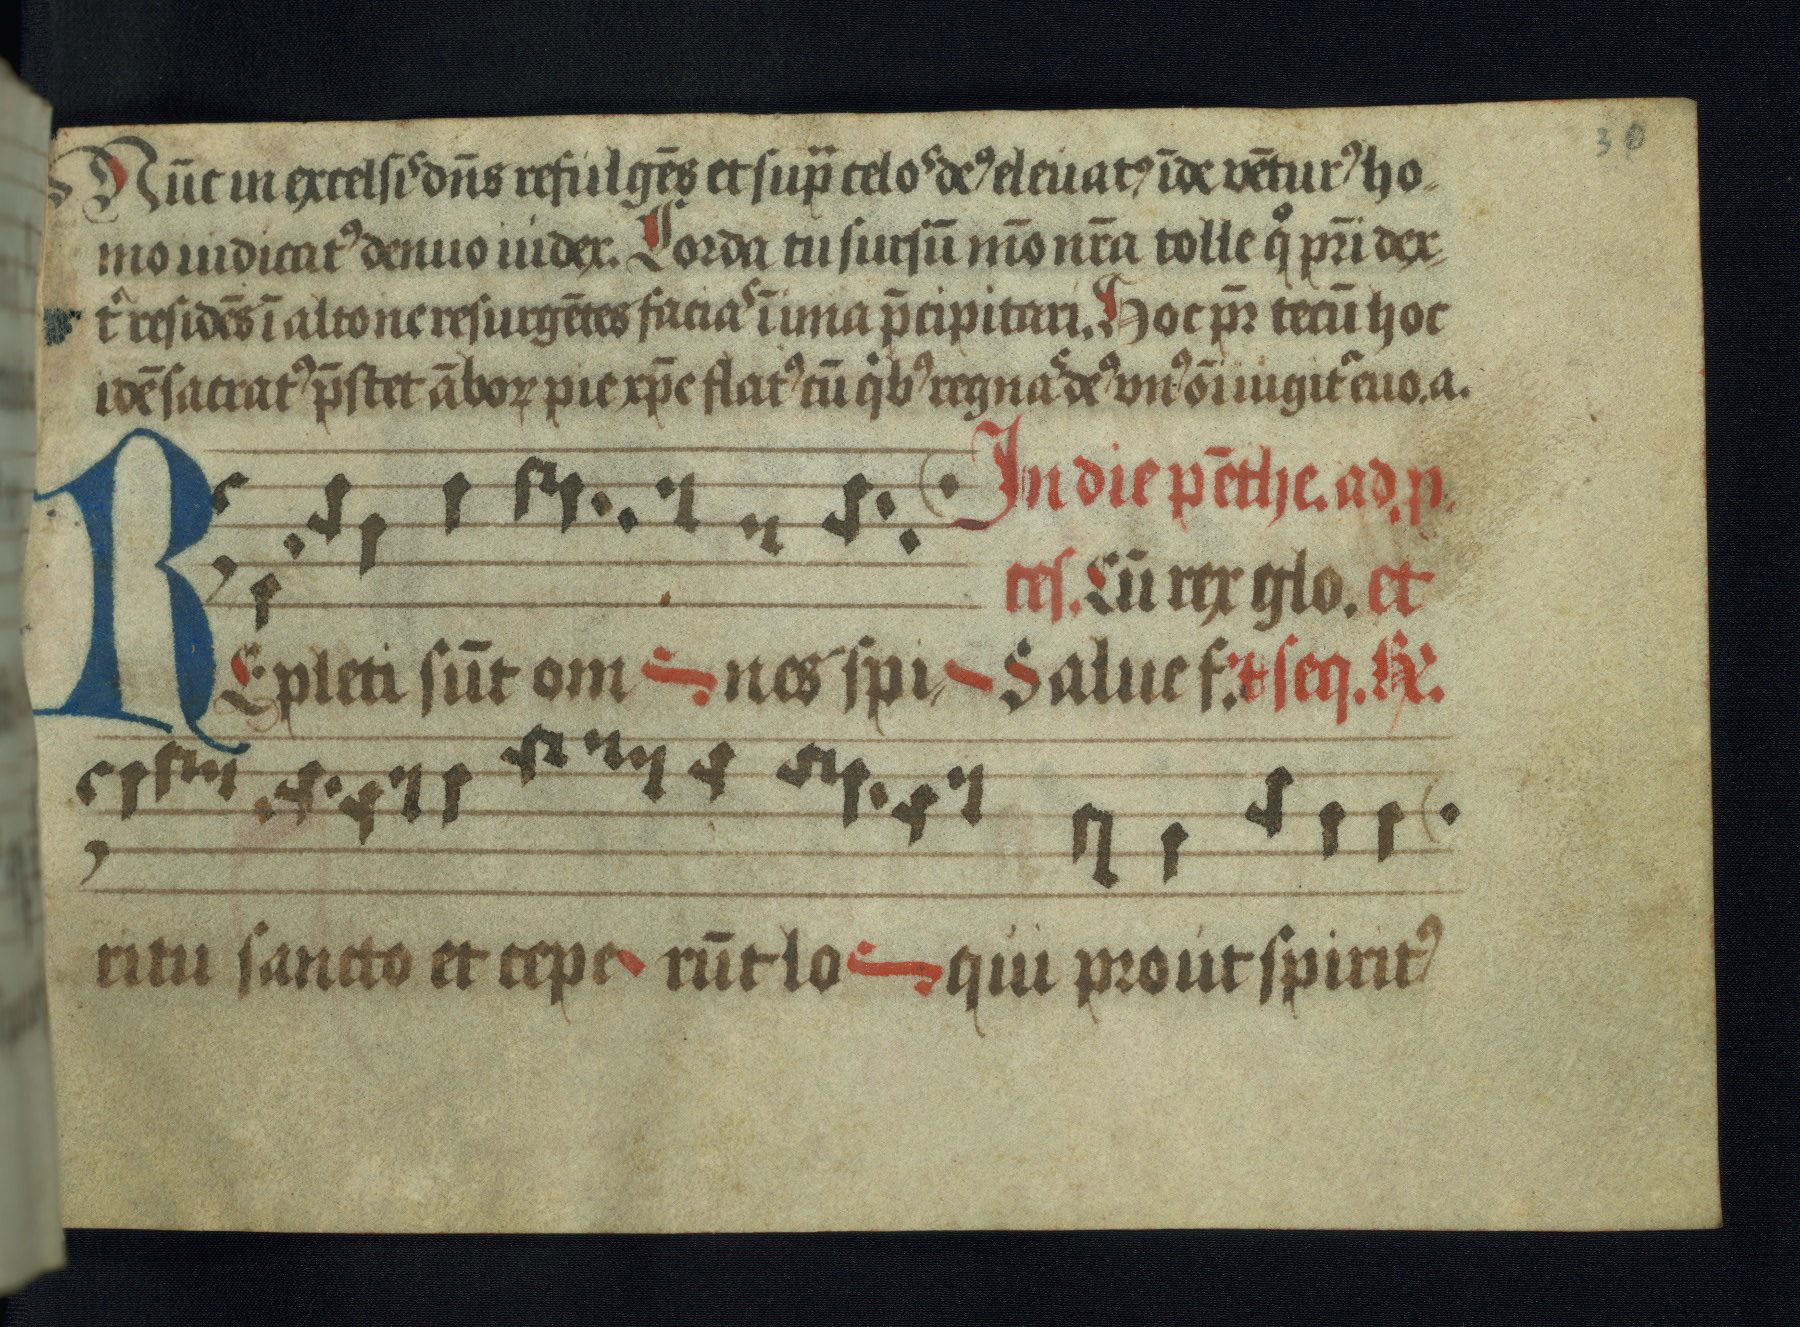 30
Nūc in excelsis dn̄s refulgēs et sup̄ celos deꝰ eleuatꝰ īde vētur͛ꝰ ho-
mo iudicatꝰ denuo iudex. Corda tu sursū m̄o nr̄a tolle qͦ pr̄i dex-
t͛ residēs ī alto ne resurgētes facias ī ima p̄cipitari. Hoc pr̄ tecū hoc
idē sacratꝰ p̄stet ābor pie xp̄e flatꝰ cū qͥbꝰ regnas deꝰ vnꝰ ōi iugit͛ euo. a.
In die pēthe. ad. p.
ces. Cū rex glo. et
REpleti sūt om nes spi- Salue f. et seq. R͛.
ritu sancto et cepe rūt lo qui prout spiritꝰ